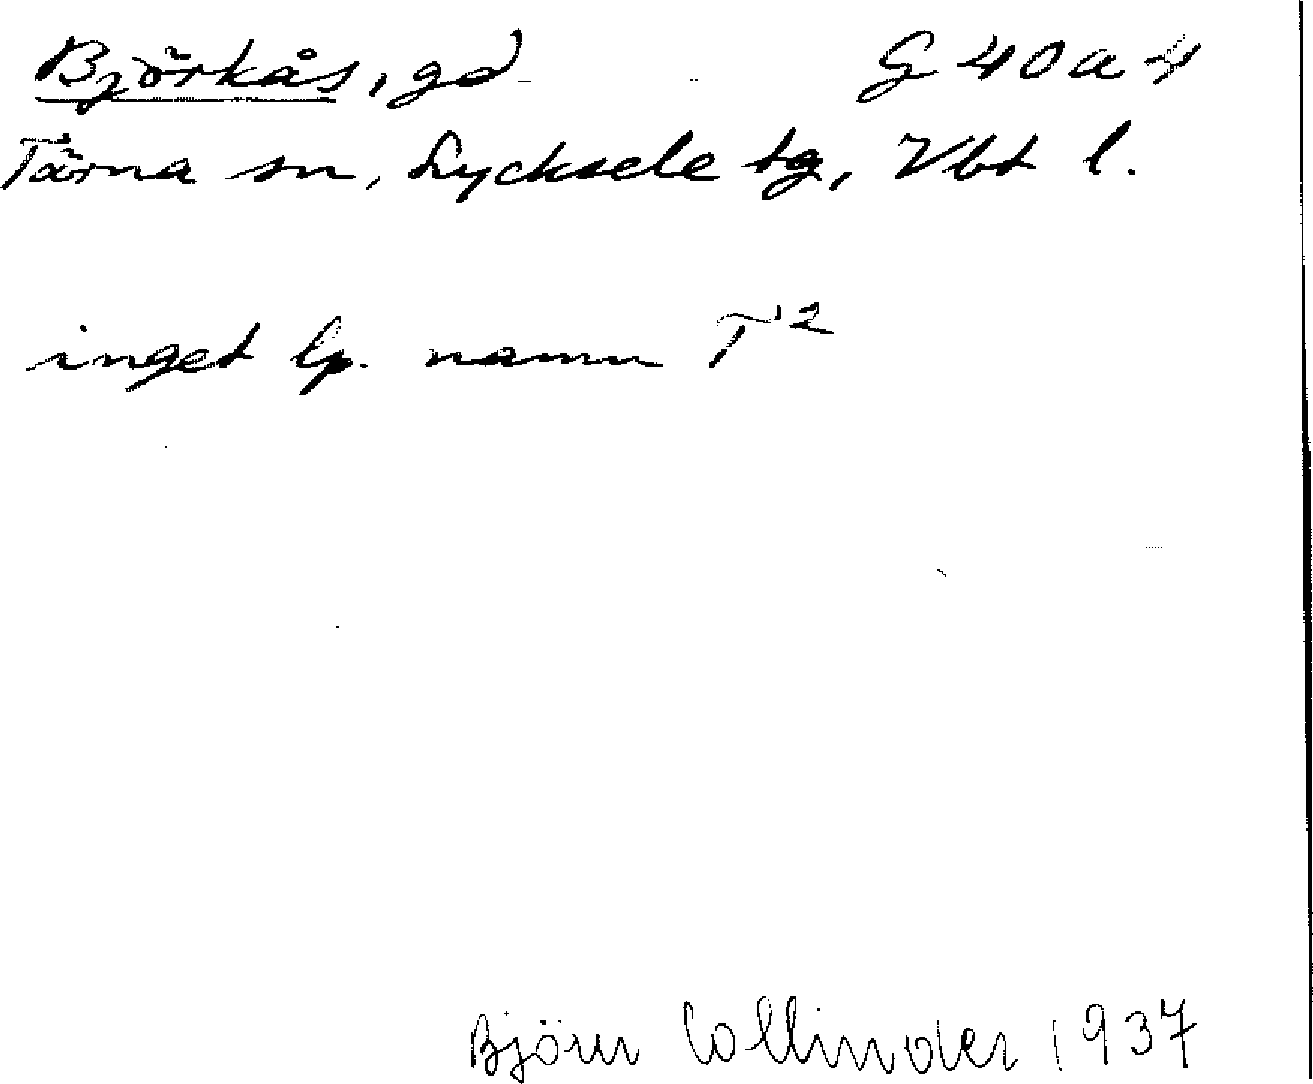 Björkås, gd G 40 a 4
Tärna sn, Lycksele tg, Vbt l.
inget lp. namn T²
Björn Collinder 1937